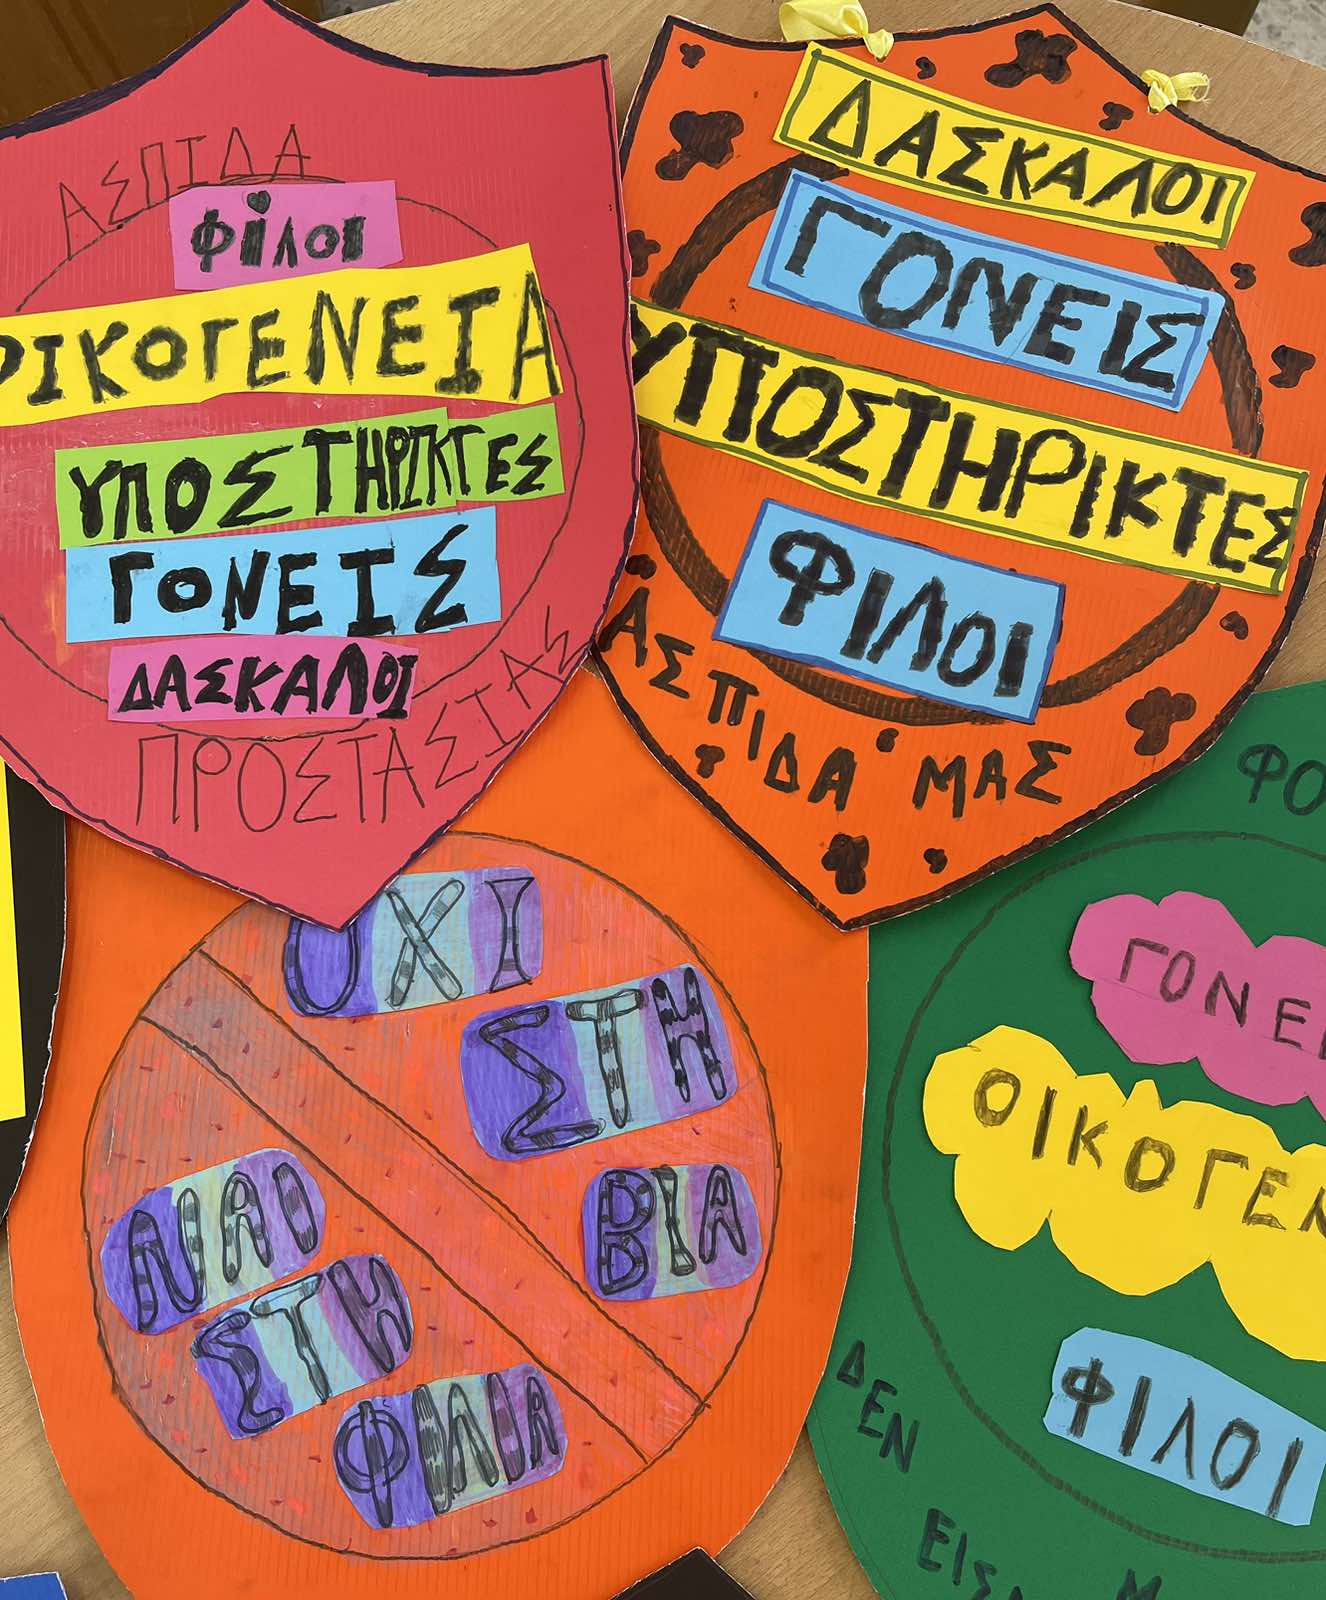 ΑΣΠΙΔΑ
ΦΙΛΟΙ
ΟΙΚΟΓΕΝΕΙΑ
ΥΠΟΣΤΗΡΙΚΤΕΣ
ΓΟΝΕΙΣ
ΔΑΣΚΑΛΟΙ
ΠΡΟΣΤΑΣΙΑΣ
ΔΑΣΚΑΛΟΙ
ΓΟΝΕΙΣ
ΥΠΟΣΤΗΡΙΚΤΕΣ
ΦΙΛΟΙ
ΑΣΠΙΔΑ ΜΑΣ
ΟΧΙ
ΣΤΗ
ΒΙΑ
ΝΑΙ
ΣΤΗ
ΦΙΛΙΑ
ΦΟ
ΓΟΝΕΙ
ΟΙΚΟΓΕΝ
ΦΙΛΟΙ
ΔΕΝ
ΕΙΣΑΙ Μ